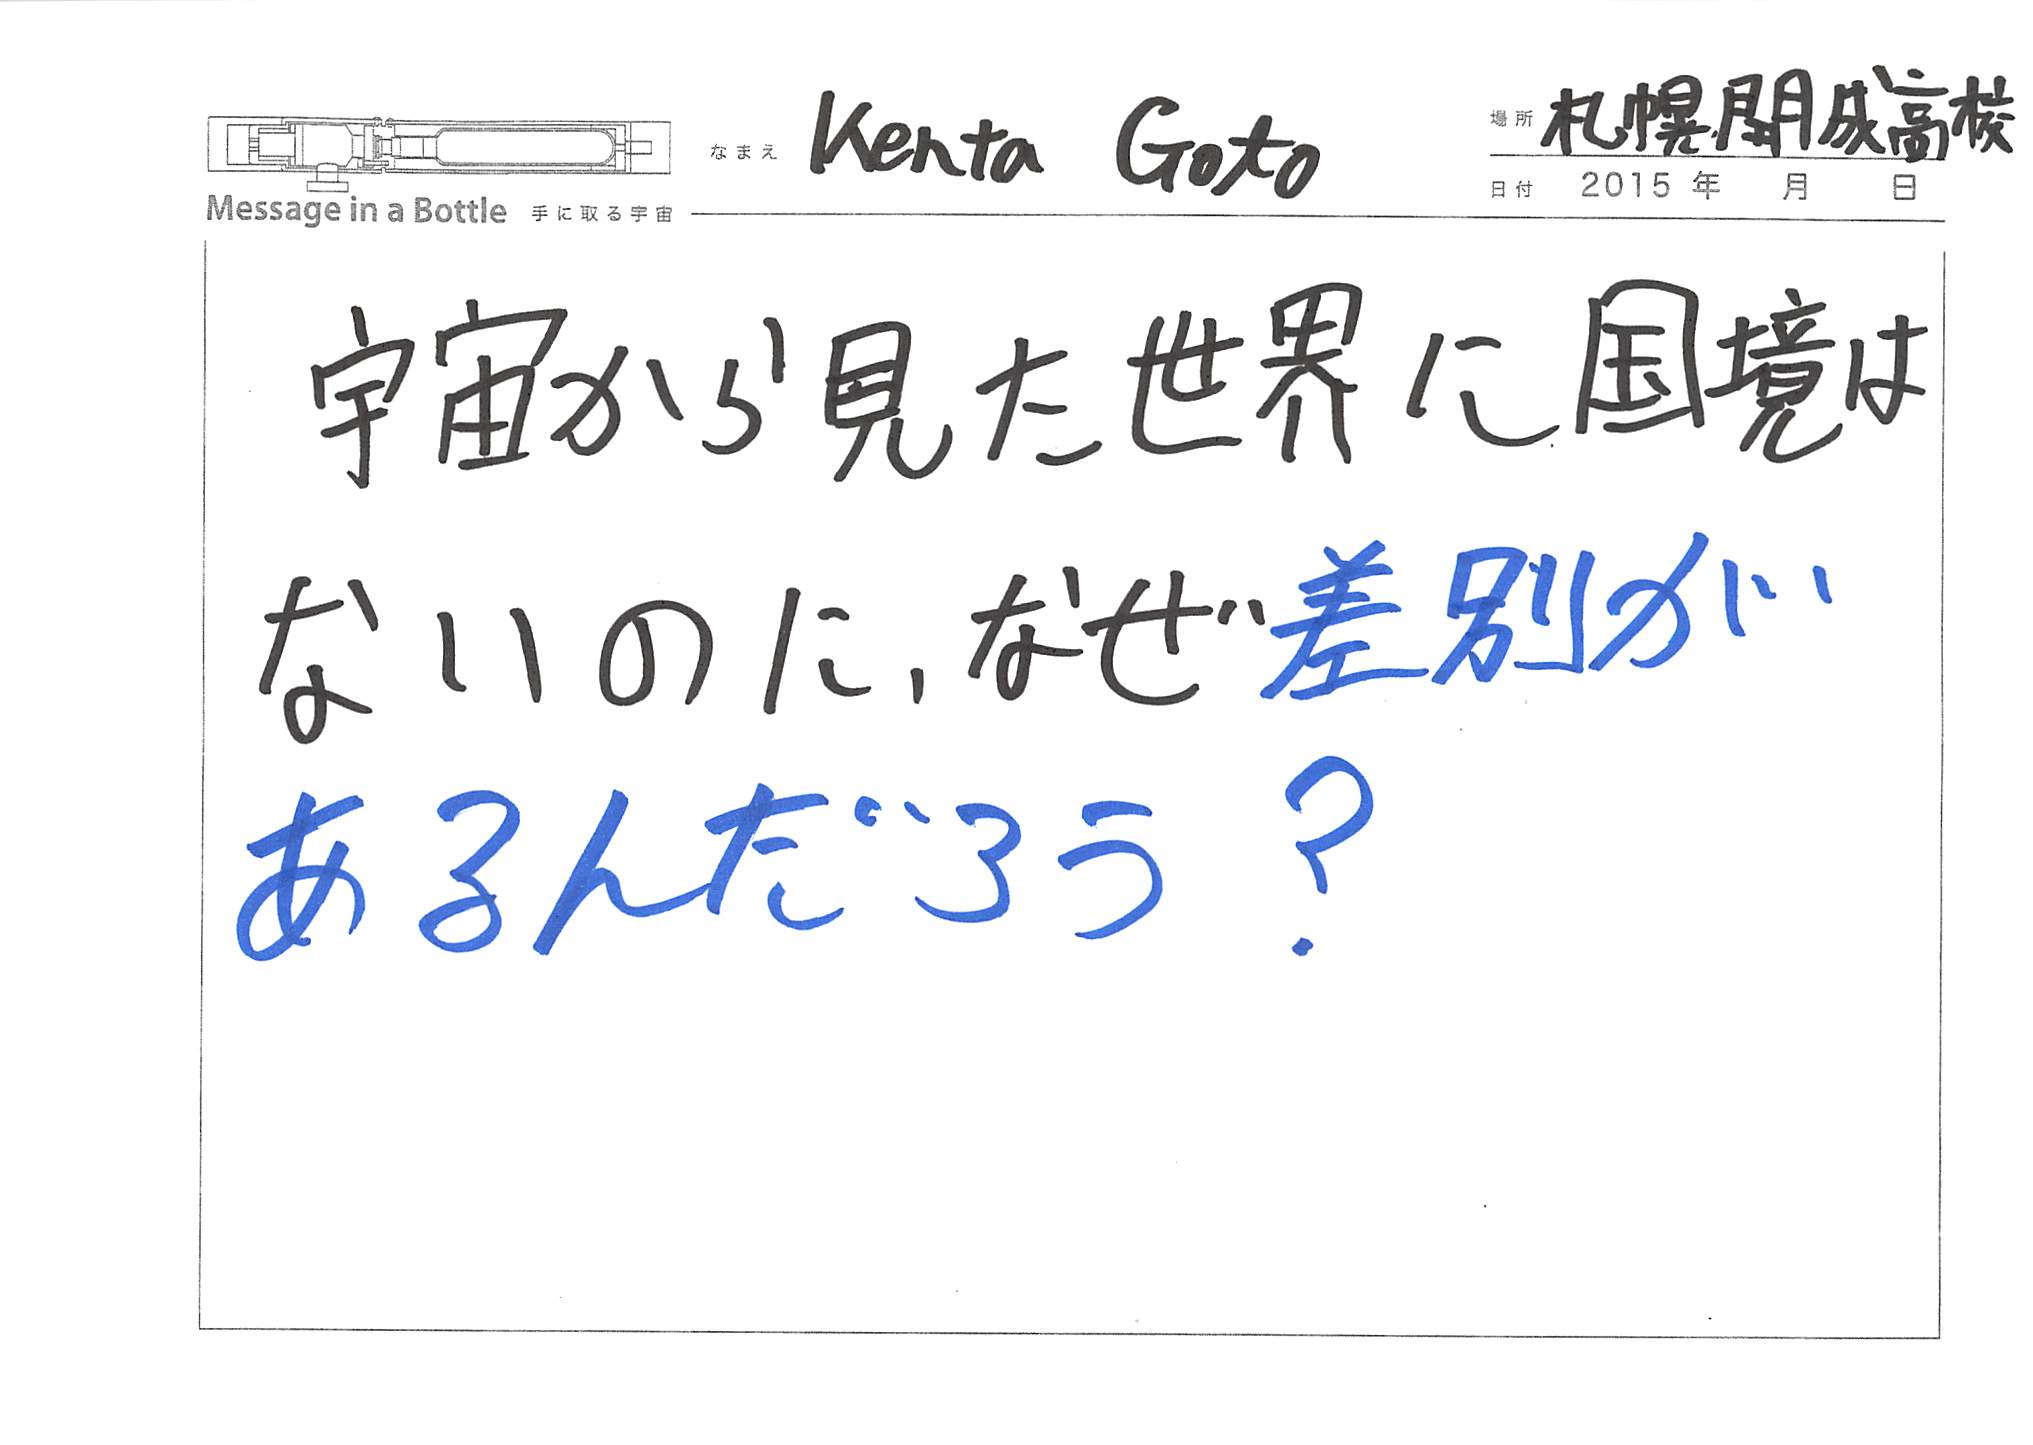 なまえ Kenta Goto
場所 札幌開成高校
日付 2015 年 月 日
Message in a Bottle 手に取る宇宙
宇宙から見た世界に国境は
ないのに,なぜ差別が
あるんだろう?